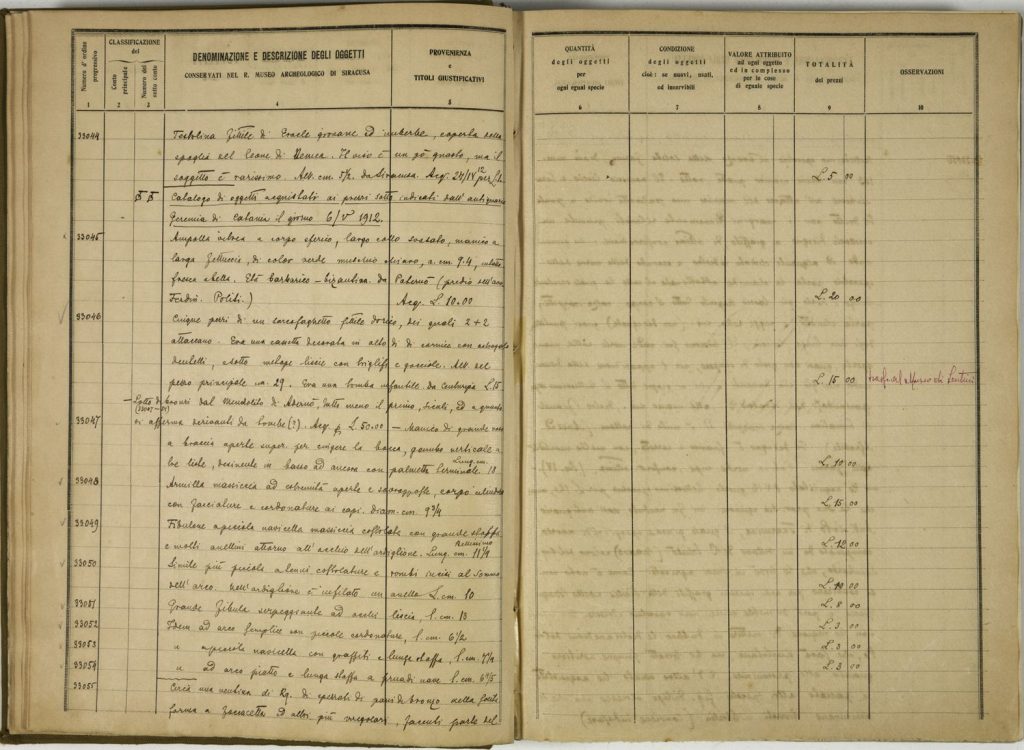 Numero d'ordine progressivo
CLASSIFICAZIONE del
Conto principale
Numero del sotto conto
DENOMINAZIONE E DESCRIZIONE DEGLI OGGETTI
CONSERVATI NEL R. MUSEO ARCHEOLOGICO DI SIRACUSA
PROVENIENZA
e
TITOLI GIUSTIFICATIVI
1 2 3 4 5
33044 Testolina fittile di Eracle giovane ed imberbe, coperta della
spoglia del leone di Nemea. Il viso è un pò guasto, ma il
soggetto è rarissimo. Alt. cm. 5½. da Siracusa. Acq.
Catalogo di oggetti acquistati ai prezzi sotto indicati dall'antiquario
Geremia di Catania il giorno 6/V 1912.
33045 Ampolla vitrea a corpo sferico, largo collo svasato, manico a
larga fettuccia, di color verde muschio chiaro, a. cm. 9.4,
fresca e bella. Età barbarico-bizantina. da Paternò (predio dell'avv.
Ferdin. Politi.) Acq. L. 10.00
33046 Cinque pezzi di un sarcofaghetto fittile dorico, dei quali 2+2
attaccano. Era una cassetta decorata in alto di cornice con
dentelli, sotto metope liscie con triglifi e gocciole. Alt. del
pezzo principale cm. 29. Era una tomba infantile. da Centuripe L. 15
Lotto di bronzi dal Mendolito di Adernò, tutti meno il primo, siculi, ed a quanto
(33047-55)
33047 si afferma derivanti da tombe (?). Acq. p. L. 50.00 — Manico di grande vaso
a braccia aperte super. per cingere la bocca, gambo verticale a
tre teste, desinente in basso ad ancora con palmetta terminale. Lung. cm. 18
33048 Armilla massiccia ad estremità aperte e sovrapposte, corpo
con facciature e cordonature ai capi. diam. cm. 9¾
33049 Fibulone a piccola navicella massiccia costolata con grande staffa
e molti anellini attorno all'occhio dell'ardiglione. Bellissimo Lung. cm. 11¼
33050 Simile più piccola a lievi costolature e rombi incisi al sommo
dell'arco. Nell'ardiglione è infilato un anello L. cm. 10
33051 Grande fibula serpeggiante ad occhi liscia, l. cm. 13
33052 Idem ad arco semplice con piccole cordonature, l. cm. 6½
33053 " a piccola navicella con graffiti e lunga staffa, l. cm. 7¼
33054 " ad arco piatto e lunga staffa a l. cm.
33055 Circa una ventina di Kg. di spezzati di pani di bronzo nella solita
forma a focaccetta ed altri più irregolari, facenti parte del
QUANTITÀ
degli oggetti
per
ogni egual specie
CONDIZIONE
degli oggetti
cioè: se nuovi, usati,
od inservibili
VALORE ATTRIBUITO
ad ogni oggetto
ed in complesso
per le cose
di eguale specie
TOTALITÀ
dei prezzi
OSSERVAZIONI
6 7 8 9 10
L. 5 00
L. 20 00
L. 15 00 al Museo di Lentini
L. 10 00
L. 15 00
L. 12 00
L. 10 00
L. 8 00
L. 3 00
L. 3 00
L. 3 00